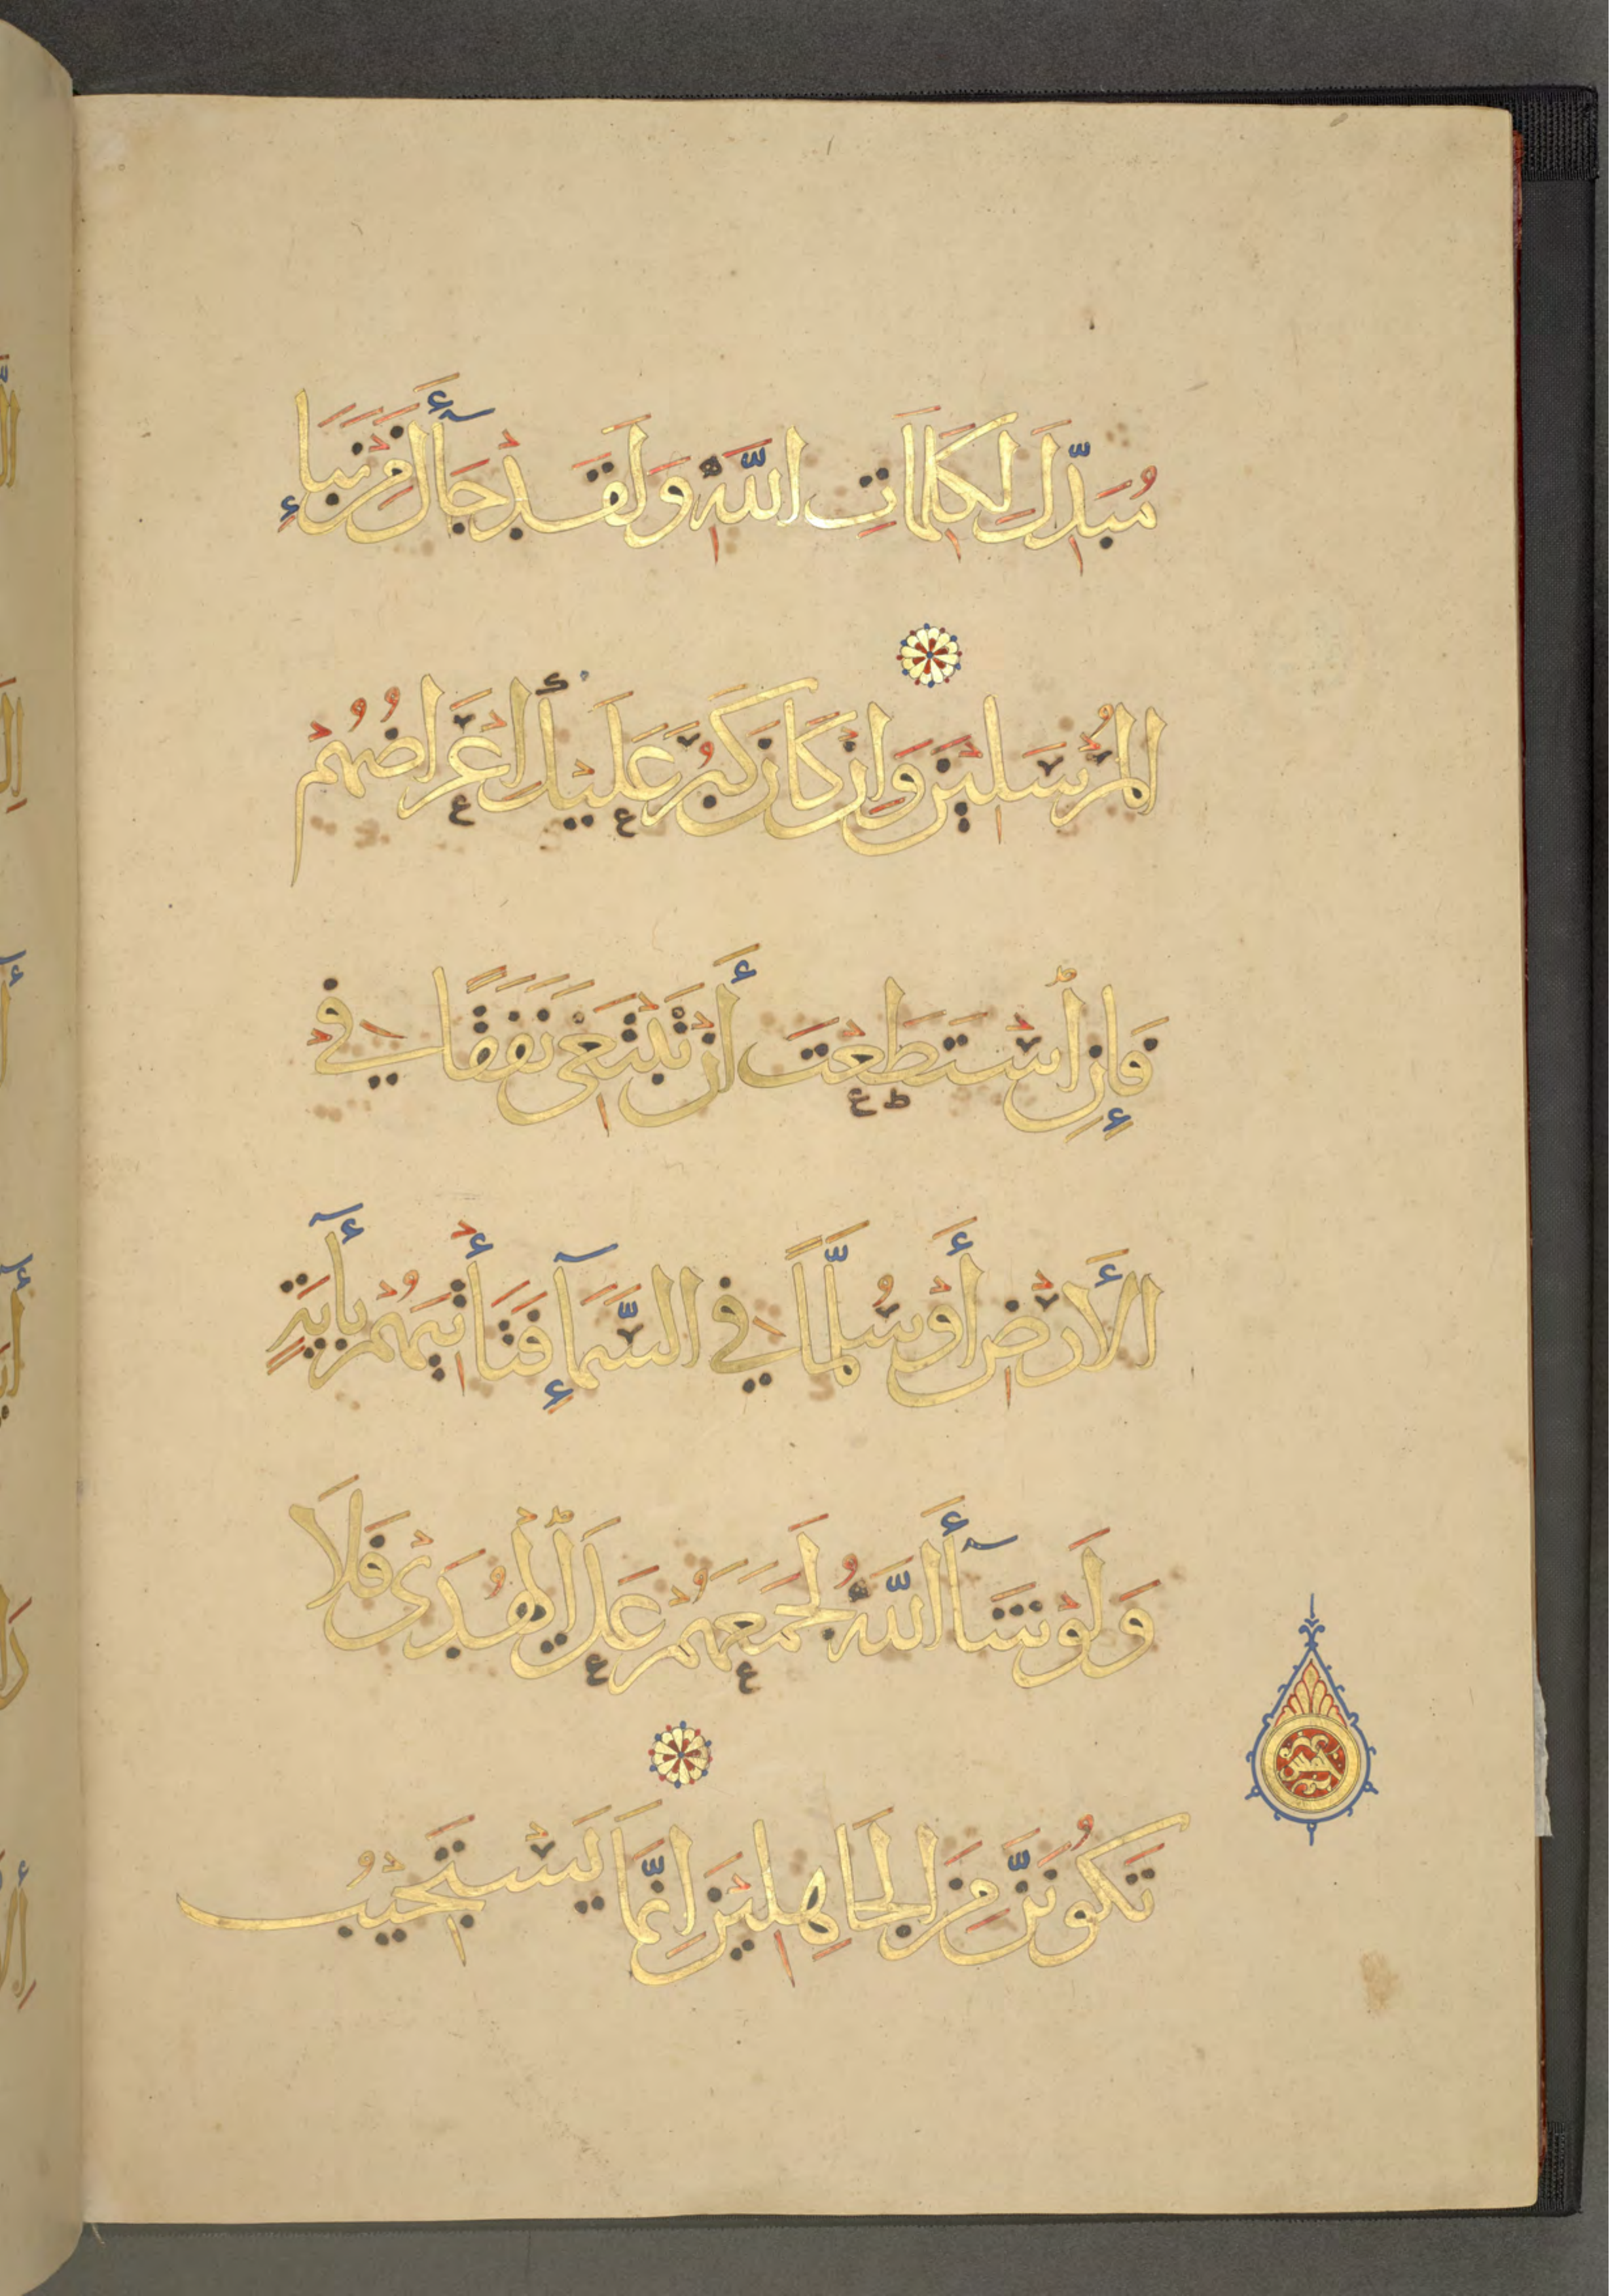 مُبَدِّلَ لِكَلِمَاتِ اللَّهِ وَلَقَدْ جَآأَكَ مِنْ نَبَاءِ
المُرْسَلِيْنَ وَاِنْ كَانَ كَبُرَ عَلَيْكَ أعْرَاضُهُمْ
فَإِنِ ٱسْتَطَعْتَ أَنْ تَبْتَغِيَ نَفَقًا فِي
الأَرْضِ أَوْ سُلَّمًا فِي السَّمَآءِ فَتَأْتِيَهُمْ بِأَيَةٍ
وَلَوْ شَآأَ اللَّهُ لَجَمَعَهُمْ عَلَى ٱلْهُدَىْ فَلَا
تَكُونَنَّ مِنَ الْجَاهِلِيْنَ اِنَّمَا يَسْتَجِيْبُ